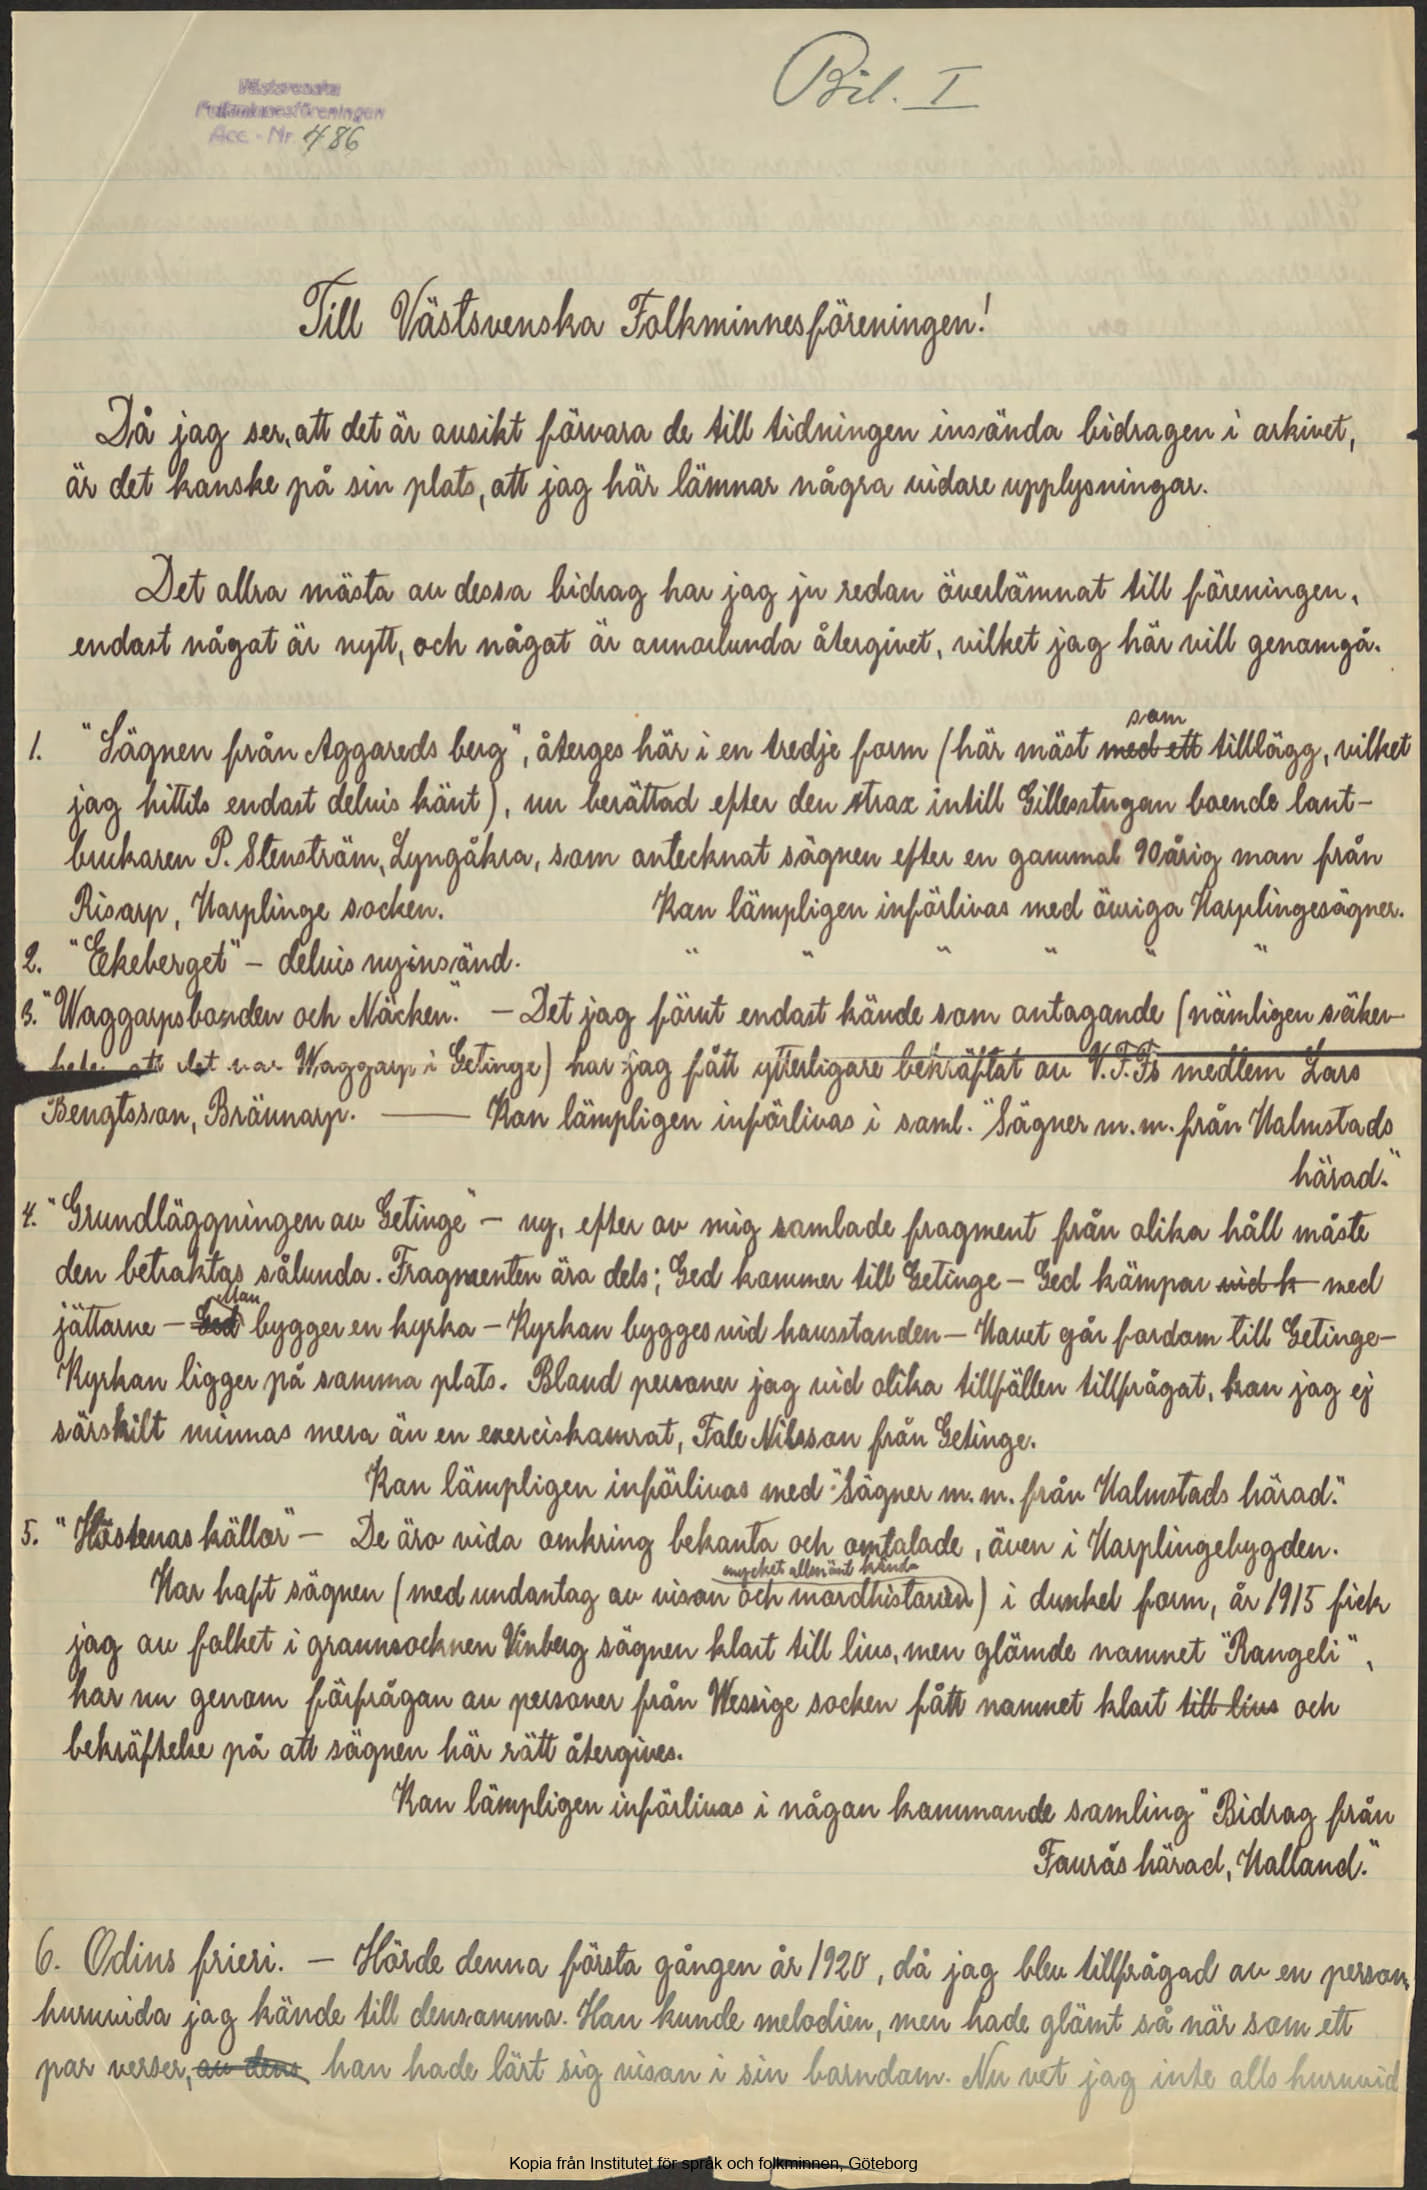 Bil. I
Västsvenska
Folkminnesföreningen
Acc. - Nr 486
Till Västsvenska Folkminnesföreningen!
Då jag ser, att det är avsikt förvara de till tidningen insända bidragen i arkivet,
är det kanske på sin plats, att jag här lämnar några vidare upplysningar.
Det allra mästa av dessa bidrag har jag ju redan överlämnat till föreningen,
endast något är nytt, och något är annorlunda återgivet, vilket jag här vill genomgå.
som
1. "Sägnen från Aggareds berg", återges här i en tredje form (här mäst med ett tillägg, vilket
jag hittils endast delvis känt), nu berättad efter den strax intill Gillesstugan boende lant-
brukaren P. Stenström, Lyngåkra, som antecknat sägnen efter en gammal 90årig man från
Risarp, Harplinge socken. Kan lämpligen införlivas med övriga Harplingesägner.
2. "Ekeberget" – delvis nyinsänd. " " " " " "
3. "Waggarpsbonden och Näcken." – Det jag förut endast kände som antagande (nämligen säker-
heten att det var Waggarp i Getinge) har jag fått ytterligare bekräftat av V.F.Fs medlem Lars
Bengtsson, Brännarp. — Kan lämpligen införlivas i saml. "Sägner m.m. från Halmstads
härad."
4. "Grundläggningen av Getinge" – ny, efter av mig samlade fragment från olika håll måste
den betraktas sålunda. Fragmenten äro dels; Ged kommer till Getinge – Ged kämpar vid k med
Man
jättarne – Ged bygger en kyrka – Kyrkan bygges vid havsstanden – Havet går fordom till Getinge –
Kyrkan ligger på samma plats. Bland personer jag vid olika tillfällen tillfrågat, kan jag ej
särskilt minnas mera än en exerciskamrat, Fale Nilsson från Getinge.
Kan lämpligen införlivas med "Sägner m.m. från Halmstads härad."
5. "Hästenas källor" – De äro vida omkring bekanta och omtalade, även i Harplingebygden.
mycket allmänt kända
Har haft sägnen (med undantag av visan och mordhistorien) i dunkel form, år 1915 fick
jag av folket i grannsocknen Vinberg sägnen klart till livs, men glömde namnet "Rangeli",
har nu genom förfrågan av personer från Wessige socken fått namnet klart till livs och
bekräftelse på att sägnen här rätt återgives.
Kan lämpligen införlivas i någon kommande samling "Bidrag från
Faurås härad, Halland."
6. Odins frieri. – Hörde denna första gången år 1920, då jag blev tillfrågad av en person,
huruvida jag kände till densamma. Han kunde melodien, men hade glömt så när som ett
par verser, av dens han hade lärt sig visan i sin barndom. Nu vet jag inte alls huruvid
Kopia från Institutet för språk och folkminnen, Göteborg